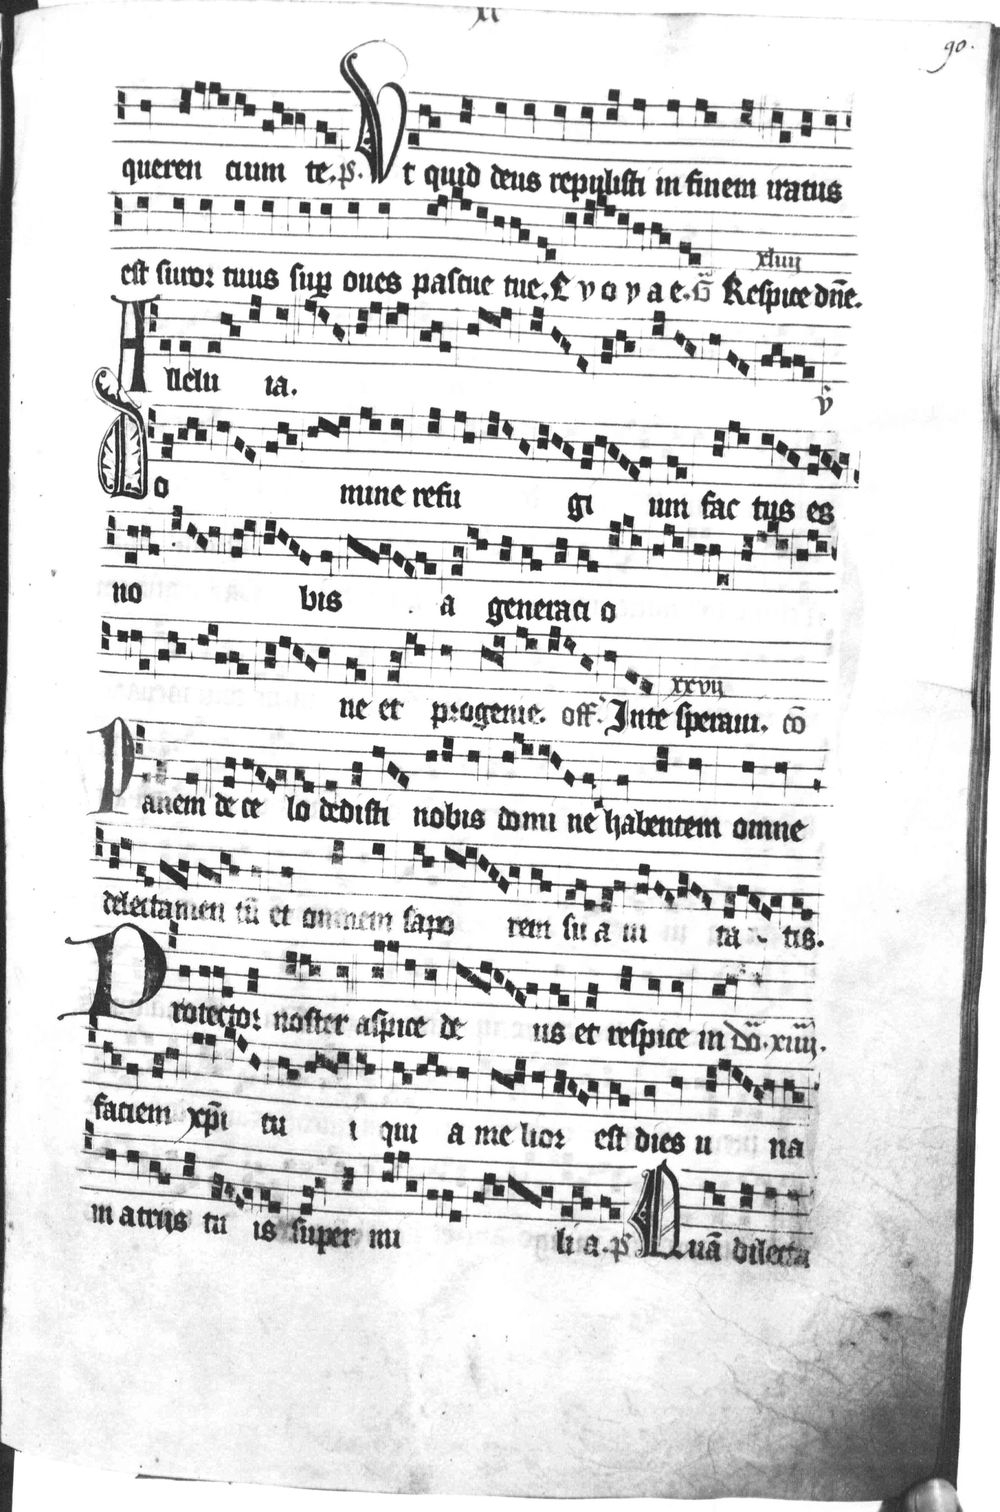 xi
90.
queren cium te. ps. Ut quid deus repulisti in finem iratus
est furor tuus sup oues pascue tue. E v o v a e. G̃ Respice dñe. xliiij
Allelu ia. v̄
Do mine refu gi um fac tus es
no bis a generaci o
ne et progenie. off. In te speraui. xxvij cō
Panem de ce lo dedisti nobis domi ne habentem omne
delectamen tū et omnem sapo rem su a ui ta tis.
Protector noster aspice de us et respice in dō. xiiij.
faciem xp̄i tu i qui a me lior est dies u na
in atrijs tu is super mi li a. ps Quā dilecta